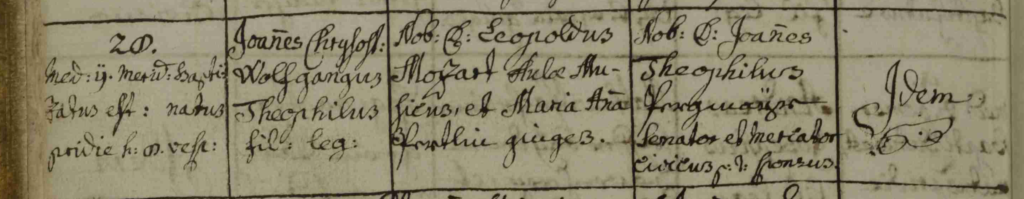 28.
med: 11. merid: Bapti
zatus est: natus
pridie h: 8. vesp:
Joan̄es Chrysost:
Wolfgangus
Theophilus
fil: leg:
Nob: D: Leopoldus
Mozart Aulæ Mu-
sicus, et Maria An̄a
Pertlin giuges.
Nob: D: Joan̄es
Theophilus
Pergmayr
Senator et Mercator
civicus p: t: sponsus.
Idem